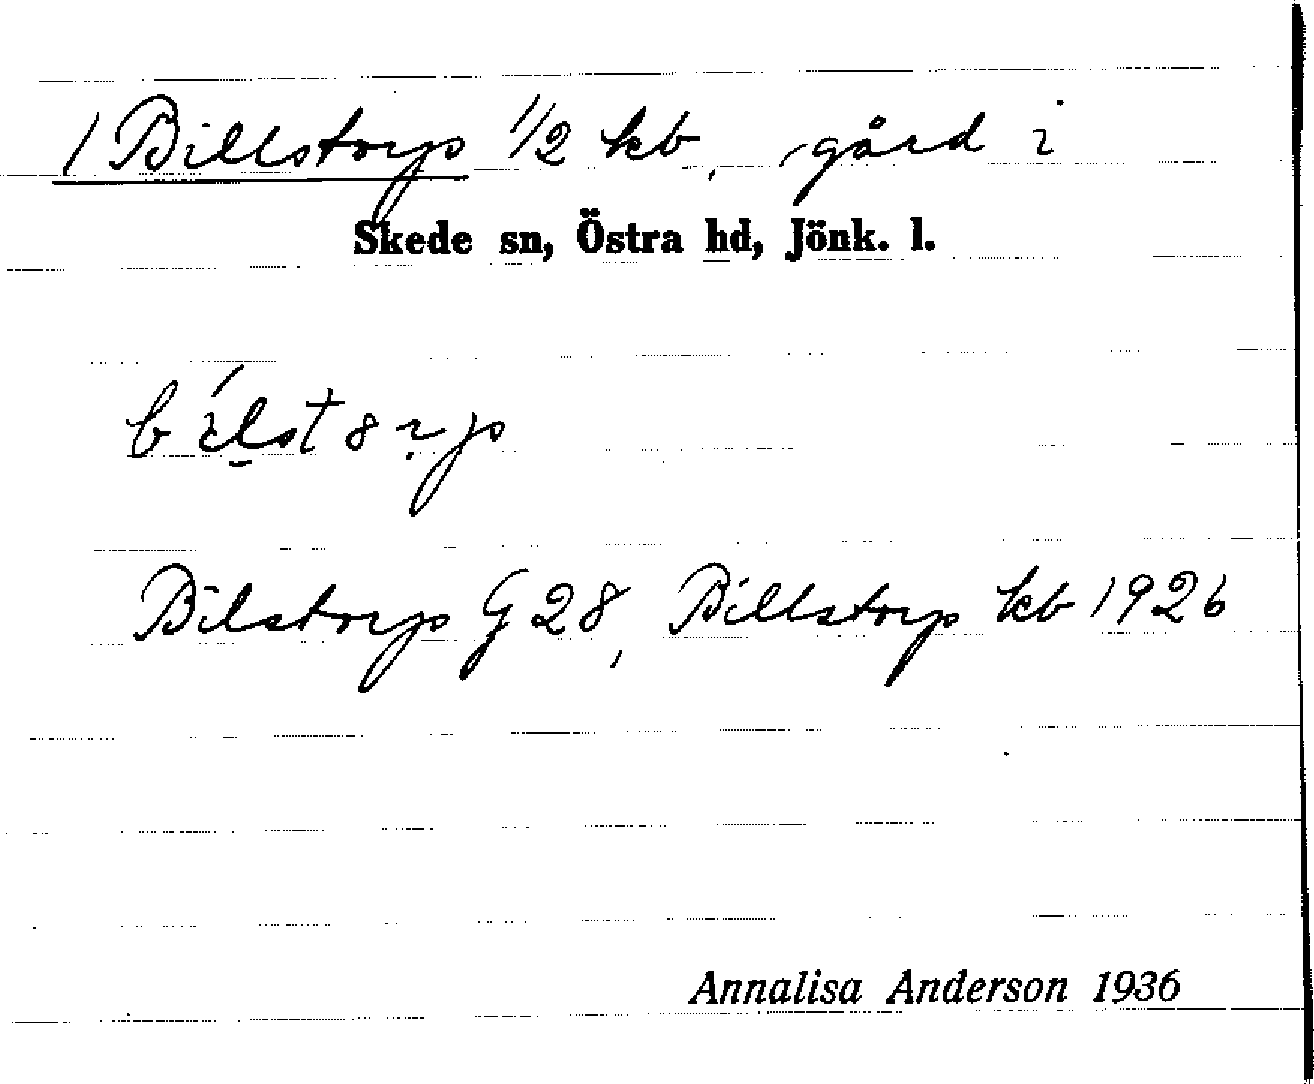 / Billstorp 1/2 kb, gård i
Skede sn, Östra hd, Jönk. l.
bílst8rp
Bilstorp G 28, Billstorp kb 1926
Annalisa Anderson 1936